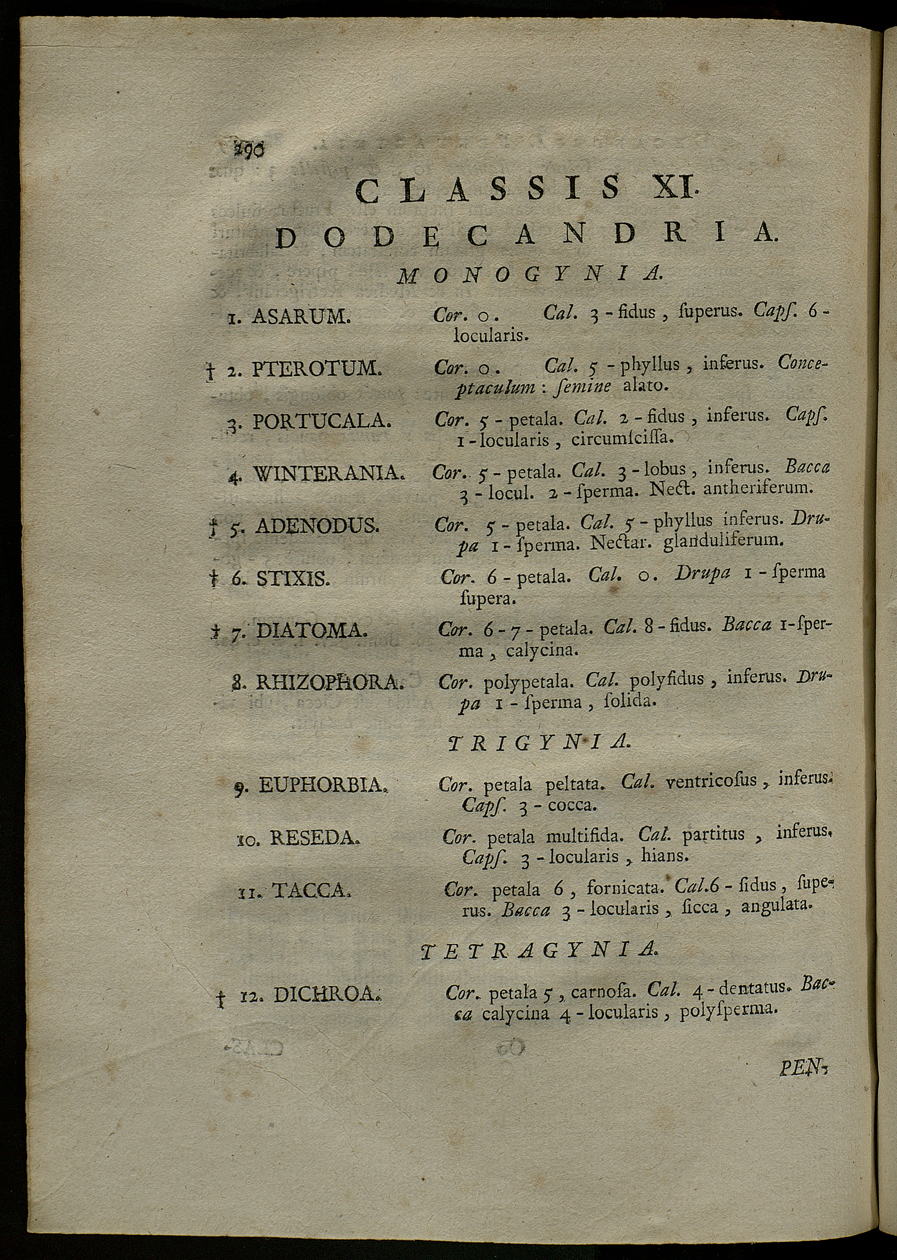 290
CLASSIS XI.
DODECANDRIA.
MONOGYNIA.
1. ASARUM. Cor. 0. Cal. 3-fidus, ſuperus. Capſ. 6-
locularis.
† 2. PTEROTUM. Cor. 0. Cal. 5-phyllus, inferus. Conce-
ptaculum: ſemine alato.
3. PORTUCALA. Cor. 5-petala. Cal. 2-fidus, inferus. Capſ.
1-locularis, circumſciſſa.
4. WINTERANIA. Cor. 5-petala. Cal. 3-lobus, inferus. Bacca
3-locul. 2-ſperma. Nect. antheriferum.
† 5. ADENODUS. Cor. 5-petala. Cal. 5-phyllus inferus. Dru-
pa 1-ſperma. Nectar. glanduliferum.
† 6. STIXIS. Cor. 6-petala. Cal. 0. Drupa 1-ſperma
ſupera.
† 7. DIATOMA. Cor. 6-7-petala. Cal. 8-fidus. Bacca 1-ſper-
ma, calycina.
8. RHIZOPHORA. Cor. polypetala. Cal. polyfidus, inferus. Dru-
pa 1-ſperma, ſolida.
TRIGYNIA.
9. EUPHORBIA. Cor. petala peltata. Cal. ventricoſus, inferus.
Capſ. 3-cocca.
10. RESEDA. Cor. petala multifida. Cal. partitus, inferus.
Capſ. 3-locularis, hians.
11. TACCA. Cor. petala 6, fornicata. Cal. 6-fidus, ſupe-
rus. Bacca 3-locularis, ſicca, angulata.
TETRAGYNIA.
† 12. DICHROA. Cor. petala 5, carnoſa. Cal. 4-dentatus. Bac-
ca calycina 4-locularis, polyſperma.
PEN-